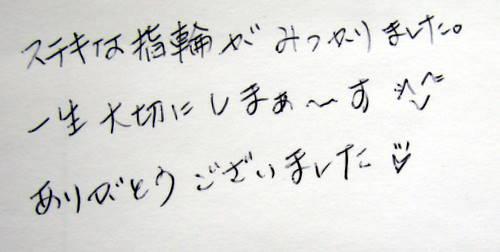 ステキな指輪がみつかりました。
一生大切にしまぁ〜す ^^
ありがとうございました